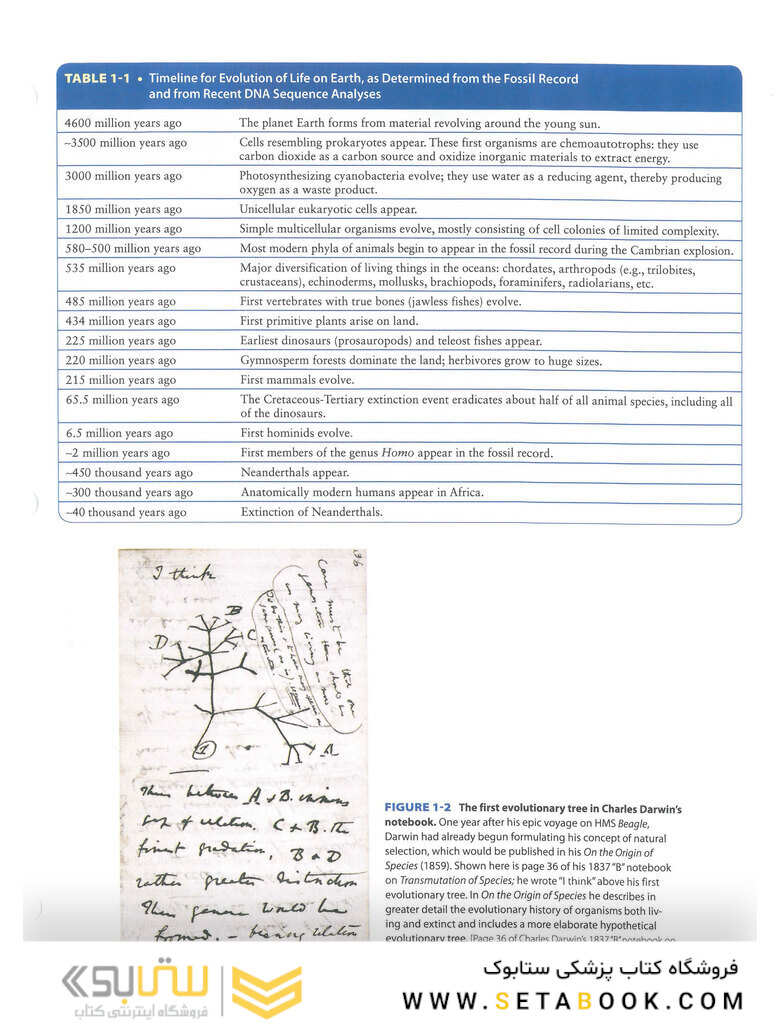 TABLE 1-1 • Timeline for Evolution of Life on Earth, as Determined from the Fossil Record
and from Recent DNA Sequence Analyses
4600 million years ago The planet Earth forms from material revolving around the young sun.
~3500 million years ago Cells resembling prokaryotes appear. These first organisms are chemoautotrophs: they use
carbon dioxide as a carbon source and oxidize inorganic materials to extract energy.
3000 million years ago Photosynthesizing cyanobacteria evolve; they use water as a reducing agent, thereby producing
oxygen as a waste product.
1850 million years ago Unicellular eukaryotic cells appear.
1200 million years ago Simple multicellular organisms evolve, mostly consisting of cell colonies of limited complexity.
580–500 million years ago Most modern phyla of animals begin to appear in the fossil record during the Cambrian explosion.
535 million years ago Major diversification of living things in the oceans: chordates, arthropods (e.g., trilobites,
crustaceans), echinoderms, mollusks, brachiopods, foraminifers, radiolarians, etc.
485 million years ago First vertebrates with true bones (jawless fishes) evolve.
434 million years ago First primitive plants arise on land.
225 million years ago Earliest dinosaurs (prosauropods) and teleost fishes appear.
220 million years ago Gymnosperm forests dominate the land; herbivores grow to huge sizes.
215 million years ago First mammals evolve.
65.5 million years ago The Cretaceous-Tertiary extinction event eradicates about half of all animal species, including all
of the dinosaurs.
6.5 million years ago First hominids evolve.
~2 million years ago First members of the genus Homo appear in the fossil record.
~450 thousand years ago Neanderthals appear.
~300 thousand years ago Anatomically modern humans appear in Africa.
~40 thousand years ago Extinction of Neanderthals.
36
I think
B
C
D
A
1
Thus between A & B. immense
gap of relation. C & B. the
finest gradation, B & D
rather greater distinction
Thus genera would be
formed. — bearing relation
FIGURE 1-2 The first evolutionary tree in Charles Darwin's
notebook. One year after his epic voyage on HMS Beagle,
Darwin had already begun formulating his concept of natural
selection, which would be published in his On the Origin of
Species (1859). Shown here is page 36 of his 1837 "B" notebook
on Transmutation of Species; he wrote "I think" above his first
evolutionary tree. In On the Origin of Species he describes in
greater detail the evolutionary history of organisms both liv-
ing and extinct and includes a more elaborate hypothetical
evolutionary tree. [Page 36 of Charles Darwin's 1837 "B" notebook on
ستابوک
فروشگاه اینترنتی کتاب
فروشگاه کتاب پزشکی ستابوک
WWW.SETABOOK.COM